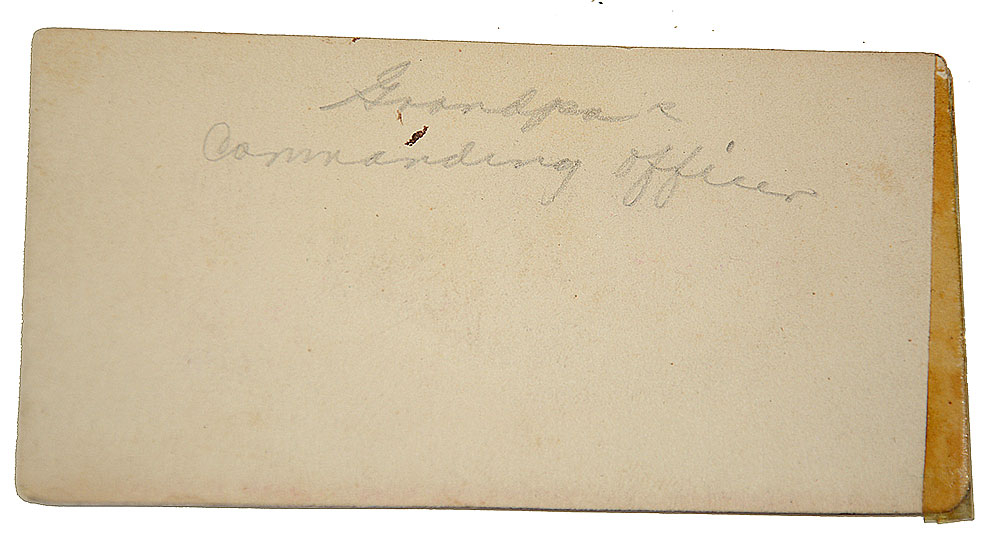 Grandpa's
Commanding Officer